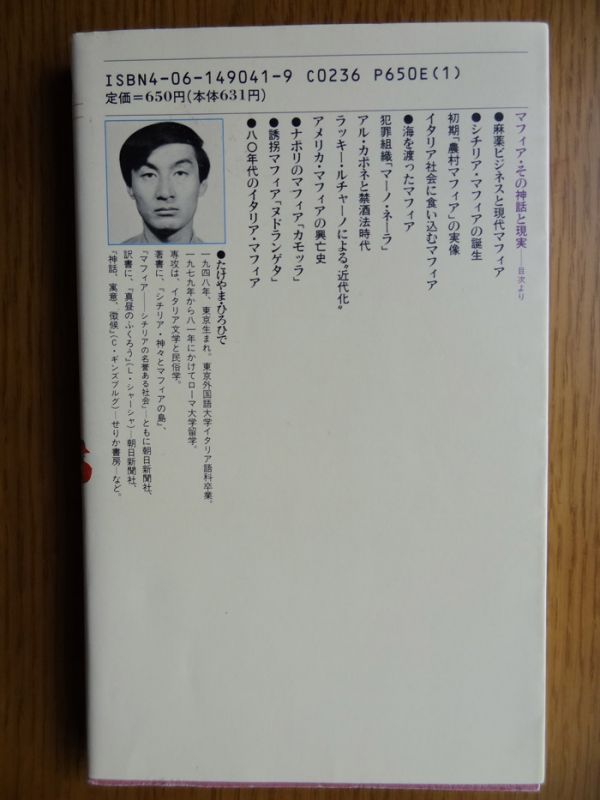 ISBN4-06-149041-9 C0236 P650E(1)
定価=650円(本体631円)
マフィア・その神話と現実——目次より
●麻薬ビジネスと現代マフィア
●シチリア・マフィアの誕生
初期「農村マフィア」の実像
イタリア社会に食い込むマフィア
●海を渡ったマフィア
犯罪組織「マーノ・ネーラ」
アル・カポネと禁酒法時代
ラッキー・ルチャーノによる“近代化”
アメリカ・マフィアの興亡史
●ナポリのマフィア「カモッラ」
●誘拐マフィア「ヌドランゲタ」
●八〇年代のイタリア・マフィア
●たけやま・ひろひで
一九四八年、東京生まれ。東京外国語大学イタリア語科卒業。
一九七九年から八一年にかけてローマ大学留学。
専攻は、イタリア文学と民俗学。
著書に、『シチリア・神々とマフィアの島』、
『マフィア——シチリアの名誉ある社会』—ともに朝日新聞社、
訳書に、『真昼のふくろう』(L・シャーシャ)—朝日新聞社、
『神話、寓意、徴候』(C・ギンズブルグ)—せりか書房—など。